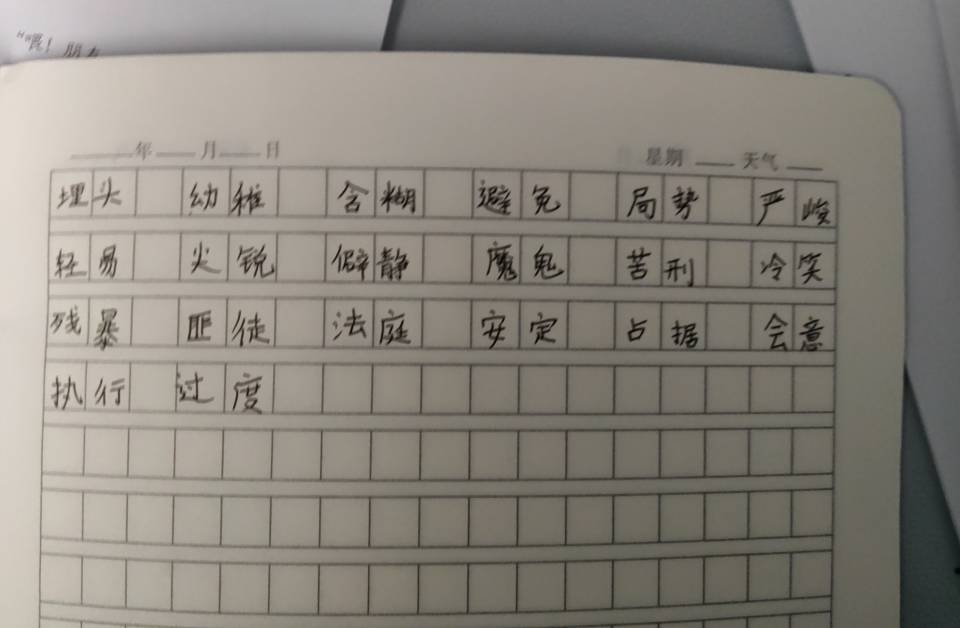 "喂！朋友
年 月 日 星期 天气
埋头 幼稚 含糊 避免 局势 严峻
轻易 尖锐 僻静 魔鬼 苦刑 冷笑
残暴 匪徒 法庭 安定 占据 会意
执行 过度